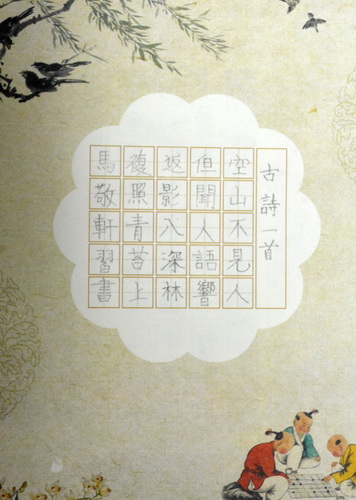 古詩一首
空山不見人
但聞人語響
返影入深林
復照青苔上
馬敬軒習書